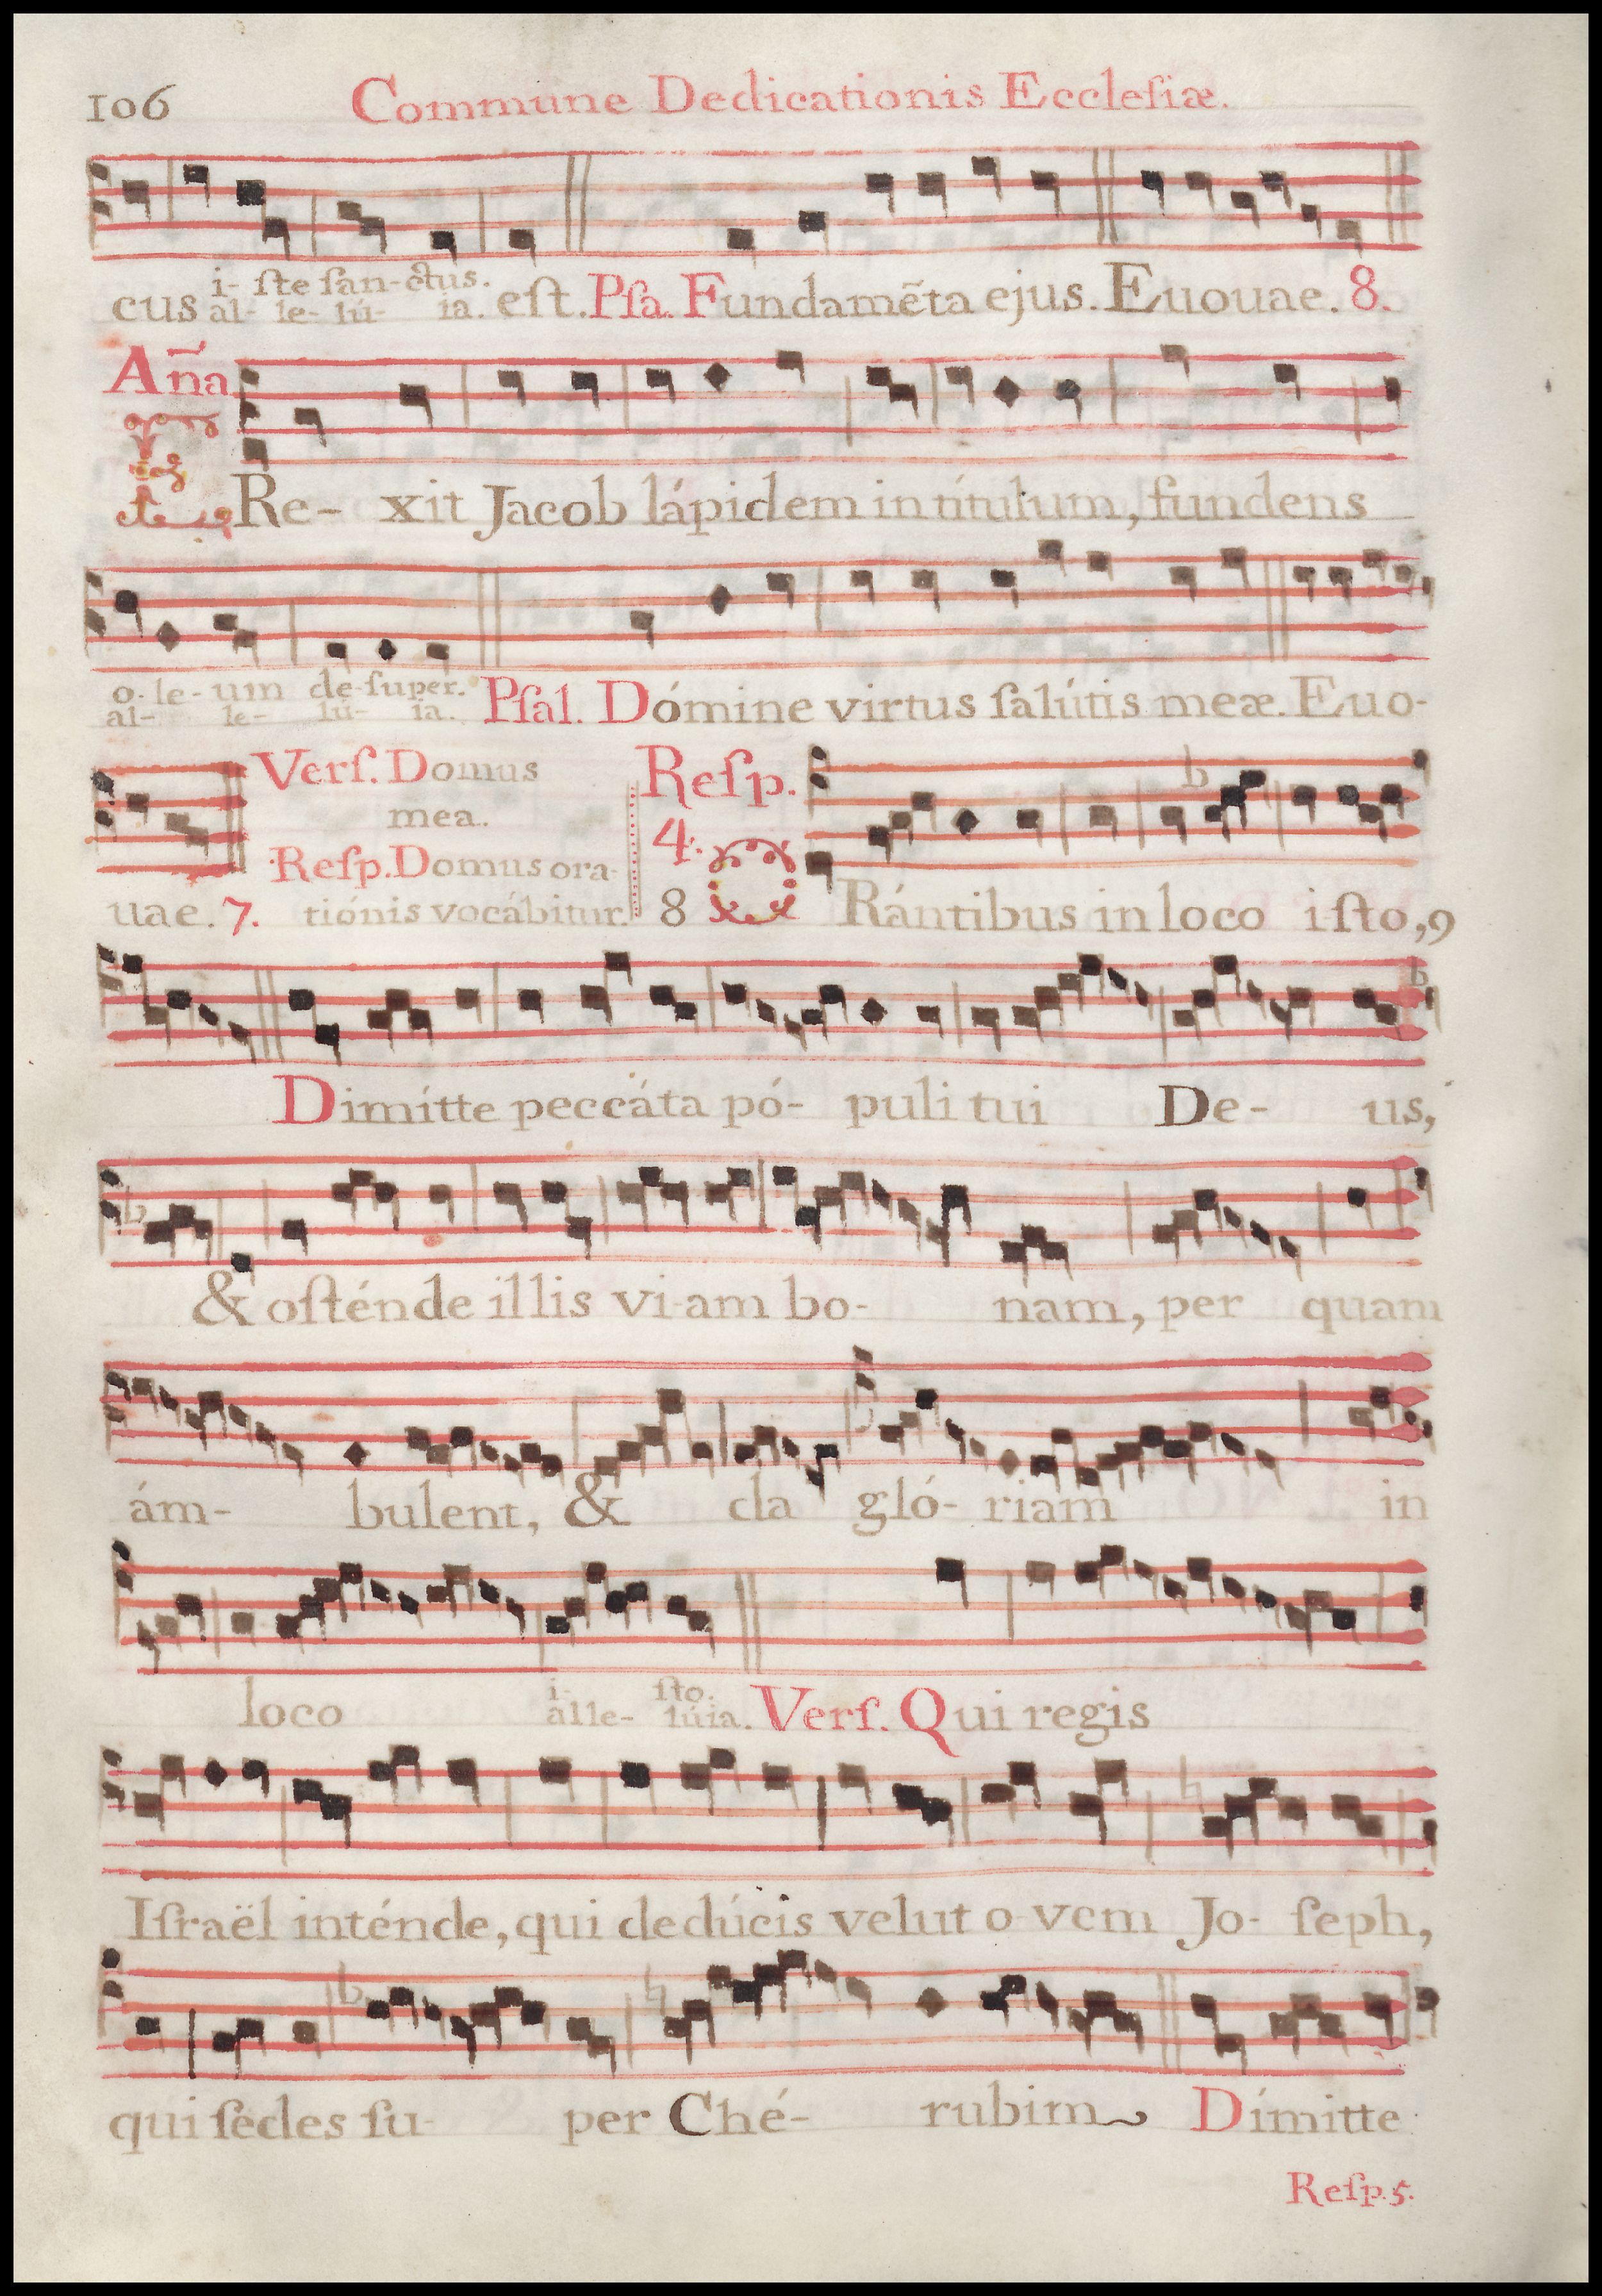 106 Commune Dedicationis Eccleſiæ.
i- ſte ſan-ctus.
cus al- le- lú- ia. eſt. Pſa. Fundamẽta ejus. Euouae. 8.
Añа
ERe- xit Jacob lápidem in títulum, fundens
o- le- um de-ſuper.
al- le- lú- ia. Pſal. Dómine virtus ſalútis meæ. Euo-
uae. 7.
Verſ. Domus
mea.
Reſp. Domus ora-
tiónis vocábitur.
Reſp.
4.
8 ORántibus in loco iſto,
Dimítte peccáta pó- puli tui De- us,
& oſténde illis vi-am bo- nam, per quam
ám- bulent, & da gló- riam in
loco i- ſto.
alle- lúia. Verſ. Qui regis
Iſraël inténde, qui dedúcis velut o-vem Jo- ſeph,
qui ſedes ſu- per Ché- rubim Dimitte
Reſp. 5.